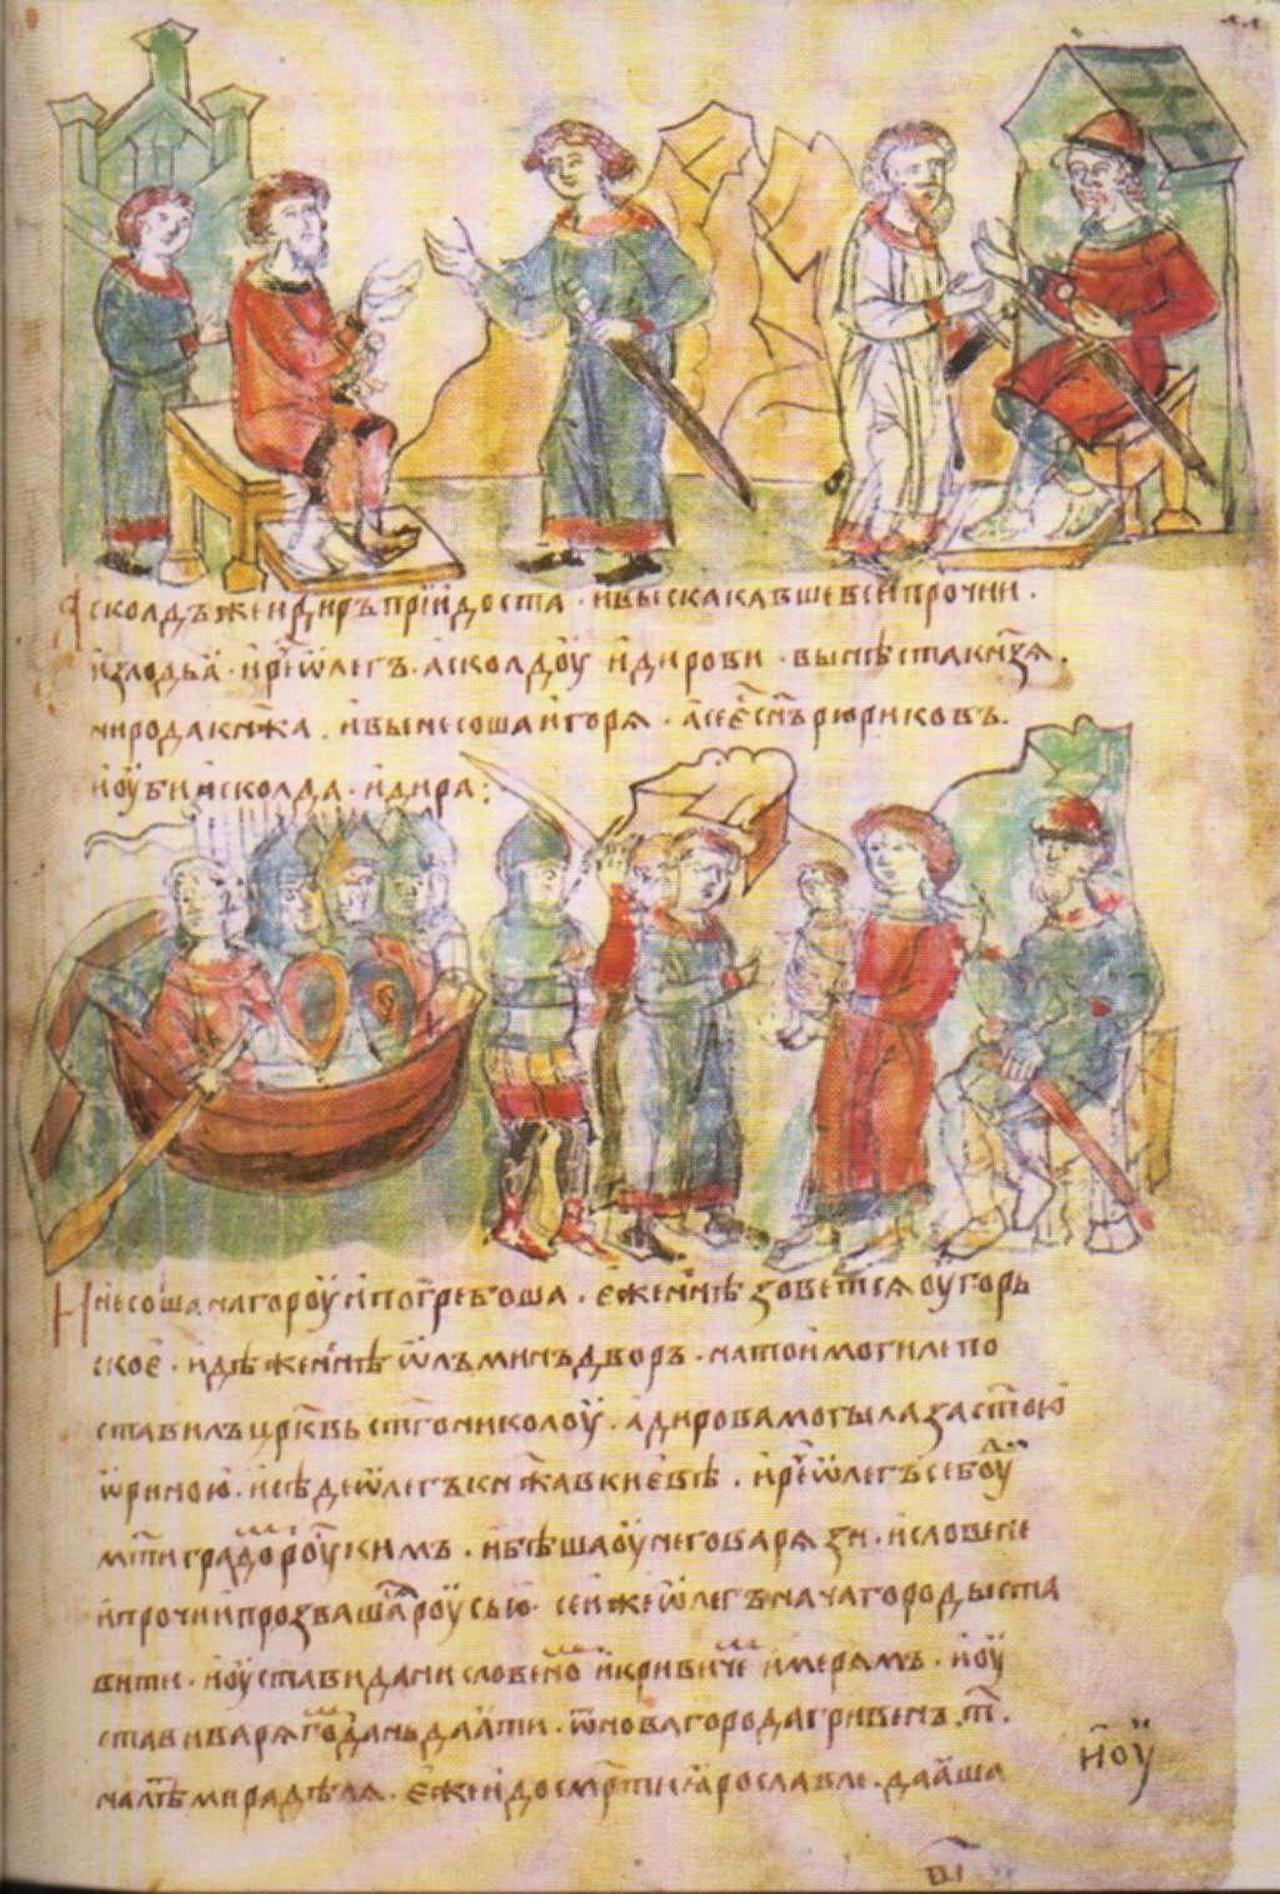 Асколдъ же и Диръ прїидоста · и выскакавше вси прочии ·
излодьа · и рⷱ҇е ѡлегъ · асколдоу и дирови · вы нѣста кнѧзѧ ·
ни рода кнѧжа · и вынесоша игорѧ · а се є҃ сн҃ъ рюриковъ ·
и оуби асколда · и дира :
И несоша на гороу и погребоша · еже ннѣ зоветсѧ оугорь
скоє · идѣже ннѣ ѡлъминъ дворъ · на тои могиле по
ставилъ цр҃квь ст҃го николоу · а дирова могыла за ст҃ою
ѡриною · и сѣде ѡлегъ кнжа в києвѣ · и рⷱ҇е ѡлегъ се боу
мт҃и градо роускимъ · и бѣша оу него варѧзи · и словене
и прочии прозвашасѧ роусью · сеи же ѡлегъ нача городы ста
вити · и оустави дани словено и кривиче и мерѧмъ · и оу
стави варѧгомъ дань даати · ѿ новагорода гривенъ · т҃ ·
на лѣ мира дѣлѧ · єже и до смрт҃и ӕрославле · даӕша
и оу